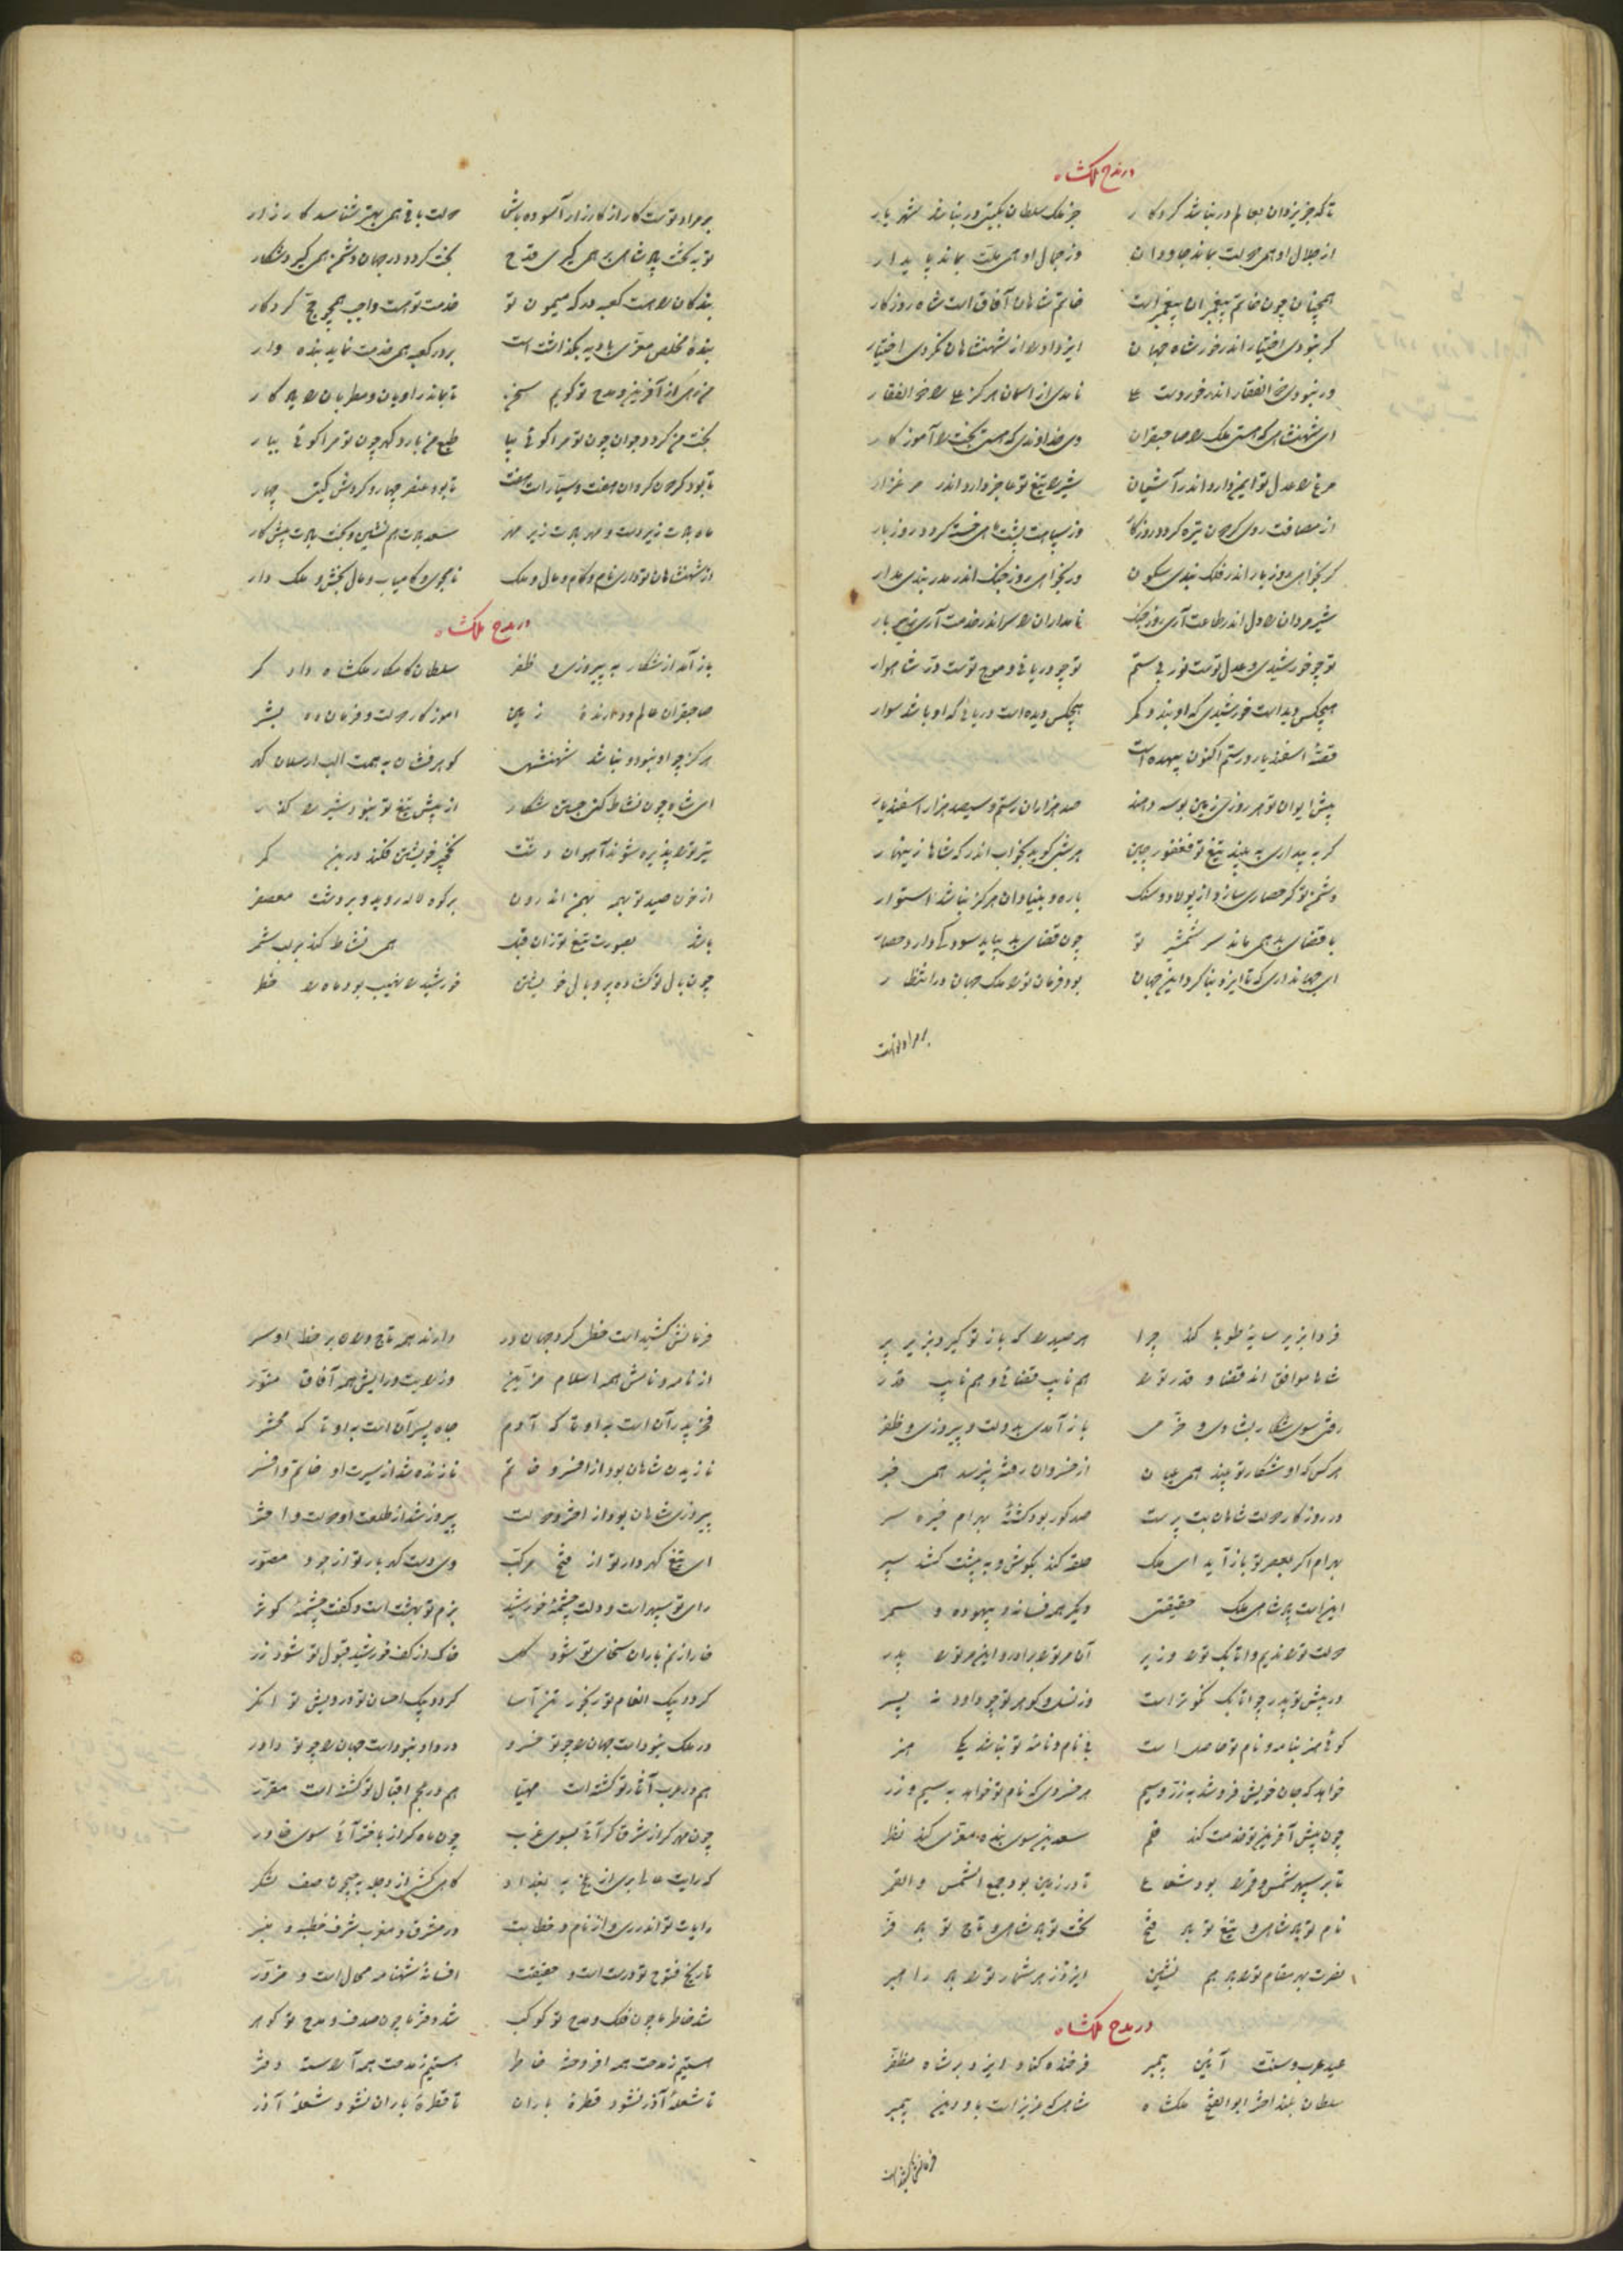 در مدح ملکشاه
تا که جز یزدان بعالم در نباشد کردگار جز ملک سلطان بگیتی در نباشد شهریار
از جلال او همی دولت بماند جاودان وز جمال او همی ملت بماند پایدار
همچنان چون خاتم پیغمبران پیغمبر است خاتم شاهان آفاق است شاه روزگار
گر نبودی اختیار اندر خور شاه جهان ایزد او را از شهنشاهان نکردی اختیار
ور نبودی ذوالفقار اندر خور دست علی نامدی از آسمان هرگز علی را ذوالفقار
ای شهنشاهی که هستی ملک را صاحبقران وی خداوندی که هستی بخت را آموزگار
مرغ را عدل تو ایمن دارد اندر آشیان شیر را تیغ تو عاجز دارد اندر مرغزار
از مصافت روی گردون تیره گردد روز کار وز سپاهت پشت ماهی خسته گردد روز بار
گر بخواهی روز بار اندر فلک بندی سکون ور بخواهی روز جنگ اندر مدر بندی مدار
شیر مردان را دل اندر طاعت آری روز جنگ نامداران را سر اندر خدمت آری روز بار
تو چو خورشیدی و عدل تست نور بی ستم تو چو دریائی و موج تست در شاهوار
هیچکس دیده است خورشیدی که او بندد کمر هیچکس دیده است دریائی که او باشد سوار
قصه اسفندیار و رستم اکنون بیهده است
پیش ایوان تو هر روزی زمین بوسه دهند صد هزاران رستم و سیصد هزار اسفندیار
گر به بیداری به بیند تیغ تو فغفور چین هر شبی گوید بخواب اندر که شاها زینهار
دشمن تو گر حصاری سازد از پولاد و سنگ باره و بنیاد آن هرگز نباشد استوار
با قضای بد همی ماند سر شمشیر تو چون قضای بد بیاید سود کی دارد حصار
ای جهانداری که تا ایزد بنا کرد این جهان بود فرمان ترا ملک جهان در انتظار
بر مراد تست
بر مراد تست کار از کارزار آسوده باش دولت باقی همی بهتر شناسد کارزار
تو به تخت پادشاهی بر همی گیری قدح بخت گردد در جهان دشمن همی گیرد شکار
بندگان را هست کعبه درگه میمون تو خدمت تو هست واجب همچو حج کردگار
بندهٔ مخلص معزی بادیه بگذاشت است بر در کعبه همی خدمت نماید بنده وار
من رهی از آفرین و مدح تو گویم سخن تا بماند راویان و مطربان را یادگار
بخت من گردد جوان چون تو مرا گوئی بیا طبع من بارد گهر چون تو مرا گوئی بیار
تا بود گردون گردان هفت و سیارات هفت تا بود عنصر چهار و گردش گیتی چهار
ماه بادت زیر دست و مهر بادت زیر مهر سعد بادت هم نشین و بخت بادت پیش کار
از شهنشاهان تو داری نام و کام و مال و ملک نامجوی و کامیاب و مال بخش و ملک دار
در مدح ملکشاه
باز آمد از شکار به پیروزی و ظفر سلطان کامکار ملکشاه دادگر
صاحبقران عالم و دارندهٔ زمین آموزگار دولت و فرمان ده بشر
هرگز چو او نبود و نباشد شهنشهی گوهر فشان به همت الب ارسلان گهر
ای شاه چون نشاط کنی جستن شکار از پیش تیغ تو نبود شیر را گذر
تیر ترا پذیره شوند آهوان دشت نخچیر خویشتن فکند در بن کمر
از خون صید تو همه بهمن اندرون بر کوه لاله روید و بر دشت معصفر
باشد بصورت تیغ تو زان قبل همی نشاط کند بر لب شمر
چون بال تو گشاده پر و بال خویشتن خورشید را نهیب بود ماه را خطر
فردا بزیر سایهٔ طوبی کند چرا هر صید را که باز تو گیرد بزیر پر
شاها موافق اند قضا و قدر ترا هم نایب قضائی و هم نایب قدر
رفتی سوی شکار بشادی و خرمی باز آمدی بدولت و پیروزی و ظفر
هر کس که او شکار تو بیند همی عیان از خسروان رفته نپرسد همی خبر
در روزگار دولت شاهان بت پرست صد گور بود کشتهٔ بهرام خیره سر
بهرام اگر بعصر تو باز آید ای ملک حلقه کند بگوش و به پشت کشد سپر
اینست پادشاهی ملک حقیقتی دیگر همه فسانه و بیهوده و سمر
دولت ترا ندیم و اتابک ترا وزیر آن مر ترا برادر و این مر ترا پدر
در پیش تو پدر چو اتابک نکوتر است وز نسل و گوهر تو چو داود نه پسر
گوئی هنر بنامه و نام تو حاصل است بی نام و نامهٔ تو نباشد یکی هنر
خواهد که جان خویش فروشد به زر و سیم هر خسروی که نام تو خواند به سیم و زر
چون پیش آفرین تو خدمت کند قلم سعد برین سوی بنده معزی کند نظر
تا بر سپهر شمس و قمر را بود شعاع تا در زمین بود جمع الشمس و القمر
نام تو باد شاهی و تیغ تو باد فتح بخت تو باد شاهی و تاج تو باد فر
نصرت بهر مقام ترا باد هم نشین ایزد ز هر شمار ترا باد راهبر
در مدح ملکشاه
عید عرب و سنت آئین پیمبر فرخنده کناد ایزد بر شاه مظفر
سلطان بلند اختر ابوالفتح ملکشاه شاهی که عزیز است بدو دین پیمبر
فرمانش کشیده است
فرمانش کشیده است خطی گرد جهان در دارند همه تاج وران بر خط او سر
از نامه و نامش همه اسلام مزین وز رایت و رایش همه آفاق منور
فخر پدر آن است بدو تا که آدم جاه پسر آن است بدو تا که محشر
نازیدن شاهان بود از افسر و خاتم نازنده شد از سیرت او خاتم و افسر
پیروزی شاهان بود از اختر و دولت پیروز شد از طلعت او دولت و اختر
ای تیغ گهردار تو از فتح مرکب وی دست گهربار تو از جود مصور
رای تو سپهر است و دلت چشمهٔ خورشید بزم تو بهشت است و کفت چشمهٔ کوثر
خار از نم باران سخای تو شود گل خاک از کف خورشید قبول تو شود زر
گردد بیک انعام تو رنجور تن آسا گردد بیک احسان تو درویش توانگر
در ملک نبود است جهان را چو تو خسرو در داد نبود است جهان را چو تو داور
هم در عرب آثار تو گشته است مهیا هم در عجم اقبال تو گشته است مقرر
چون مهر گر از شرق گرائی بسوی غرب چون ماه گر از باختر آئی سوی خاور
که رایت عالی بری از بلخ به بغداد گاهی کشی از دجله به جیحون صف لشکر
رایات تو اندر ری و از نام و خطابت در مشرق و مغرب شرف خطبه و منبر
تاریخ فتوح تو درست است و حقیقت افسانهٔ شهنامه محال است و مزور
شد خاطر ما چون فلک و مدح تو کوکب شد دفتر ما چون صدف و مدح تو گوهر
هستیم ز مدحت همه افروخته خاطر هستیم ز مدحت همه آراسته دفتر
تا شعلهٔ آذر نشود قطرهٔ باران تا قطرهٔ باران نشود شعلهٔ آذر